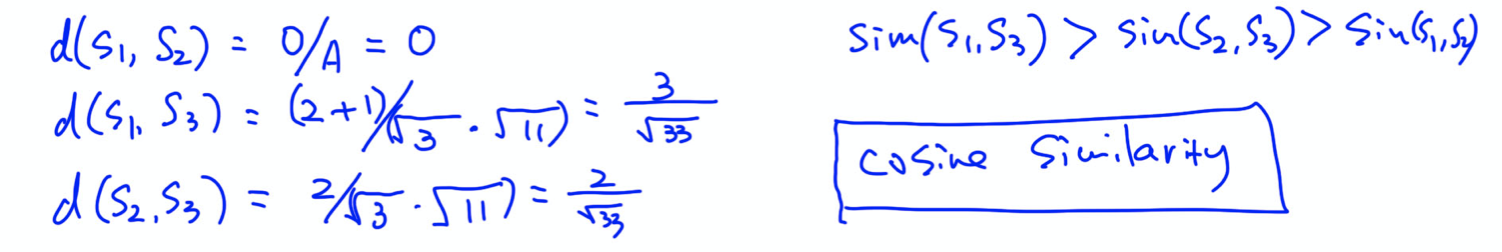 d(S₁, S₂) = 0/A = 0
d(S₁, S₃) = (2+1)/(√3 · √11) = 3/√33
d(S₂, S₃) = 2/(√3 · √11) = 2/√33
Sim(S₁, S₃) > Sim(S₂, S₃) > Sim(S₁, S₂)
Cosine Similarity